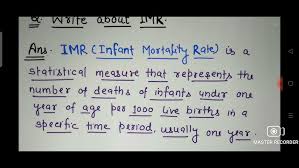 Q. Write about IMR.
Ans. IMR (Infant Mortality Rate) is a
statistical measure that represents the
number of deaths of infants under one
year of age per 1000 live births in a
specific time period, usually one year.
MASTER RECORDER